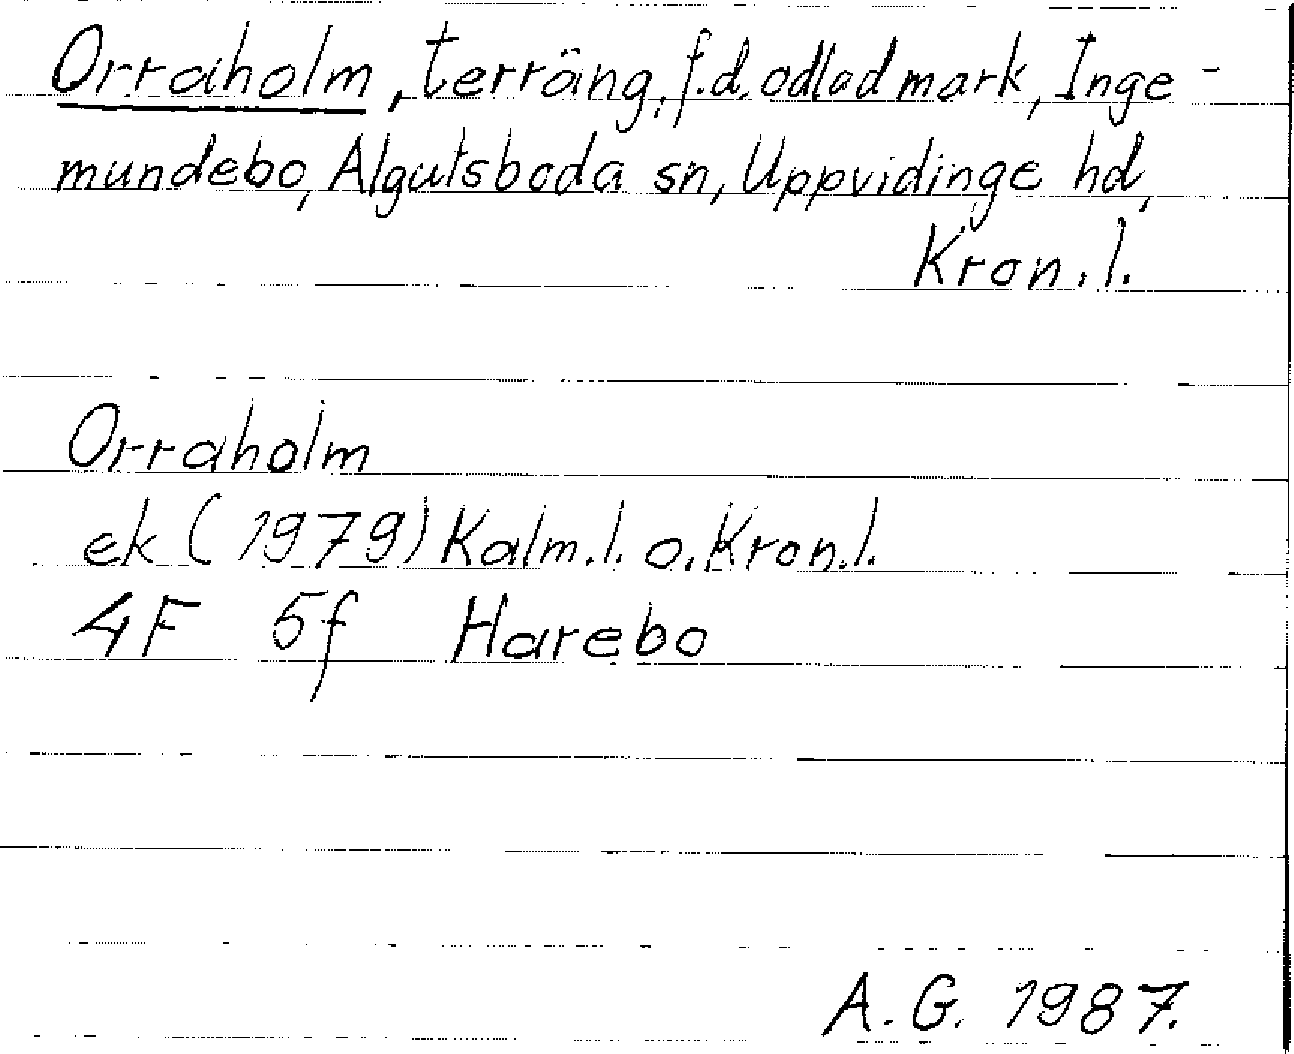 Orraholm, terräng, f.d. odlad mark, Inge-
mundebo, Algutsboda sn, Uppvidinge hd,
Kron. l.
Orraholm
ek (1979) Kalm. l. o. Kron. l.
4F 5f Harebo
A. G. 1987.